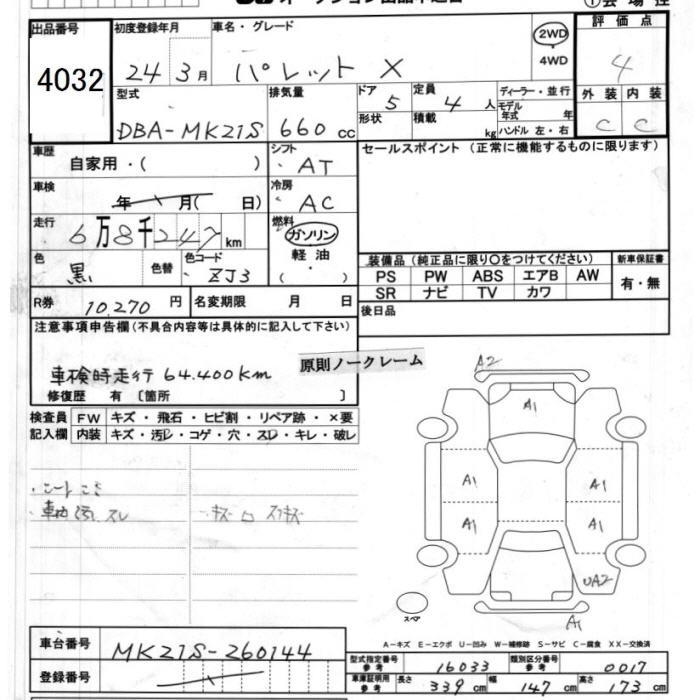 ①会場控
出品番号 初度登録年月 車名・グレード 2WD 評価点
4032 24 3月 パレット X 4WD 4
型式 排気量 ドア 定員 ディーラー・並行 外装 内装
DBA-MK21S 660 cc 5 4 人 モデル年式 年 C C
形状 積載 kg ハンドル 左・右
車歴 シフト セールスポイント (正常に機能するものに限ります)
自家用・( ) AT
車検 冷房
年 月( 日) AC
走行 燃料
6万8千247km ガソリン
色 色替 色コード 軽油
黒 ZJ3 ・( )
装備品(純正品に限り〇をつけてください) 新車保証書
PS PW ABS エアB AW 有・無
SR ナビ TV カワ
R券 10,270 円 名変期限 月 日 後日品
注意事項申告欄(不具合内容等は具体的に記入して下さい)
原則ノークレーム
車検時走行 64.400Km
修復歴 有〔箇所 〕
検査員 FW キズ・飛石・ヒビ割・リペア跡・×要
記入欄 内装 キズ・汚レ・コゲ・穴・スレ・キレ・破レ
A2
A1
A1 A1
A1 A1
UA2
スペア
A1
A-キズ E-エクボ U-凹み W-補修跡 S-サビ C-腐食 XX-交換済
車台番号 MK21S-260144
型式指定番号 参考 16033 類別区分番号 参考 0017
登録番号
車庫証明用 参考 長さ 339 cm 幅 147 cm 高さ 173 cm